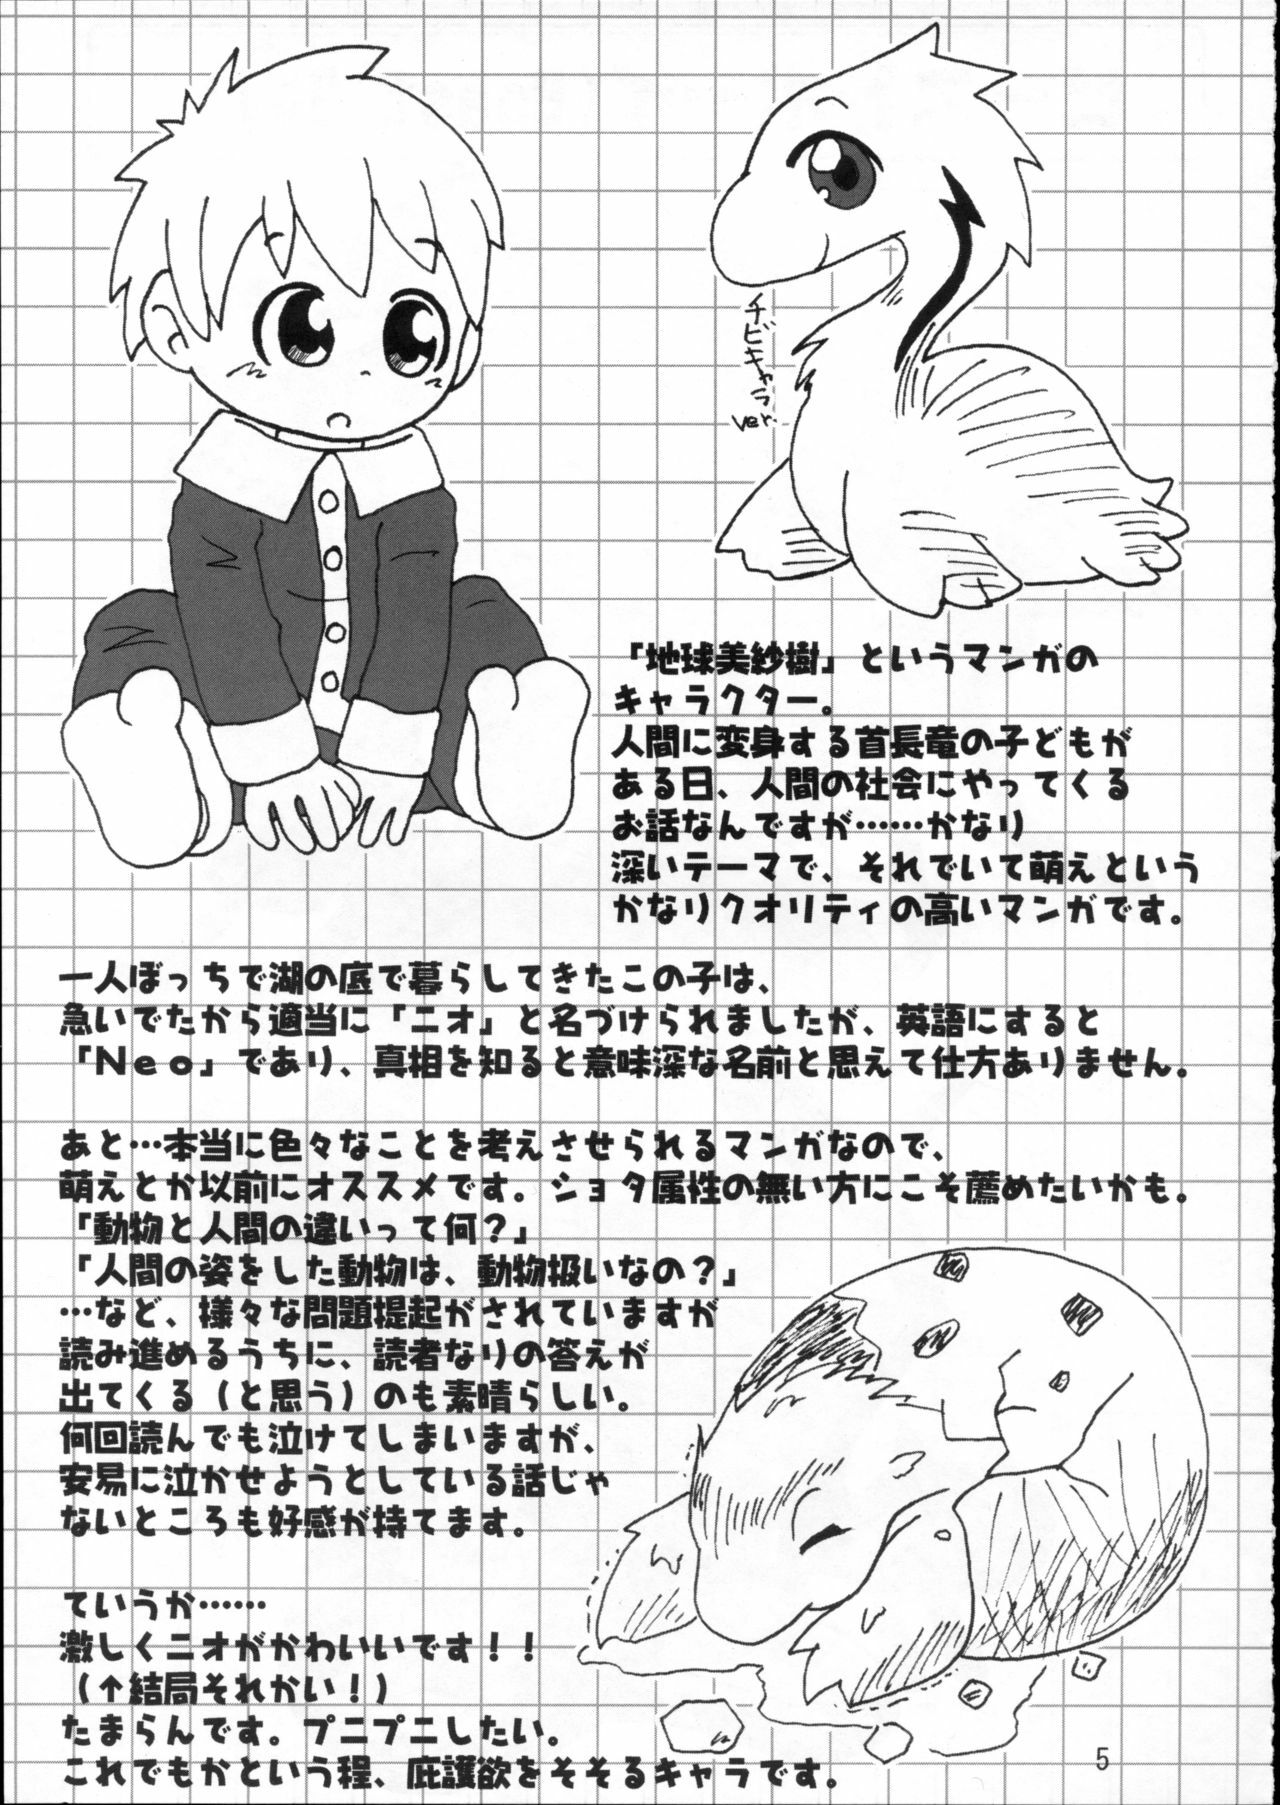 チビキャラ
ver.
「地球美紗樹」というマンガの
キャラクター。
人間に変身する首長竜の子どもが
ある日、人間の社会にやってくる
お話なんですが……かなり
深いテーマで、それでいて萌えという
かなりクオリティの高いマンガです。
一人ぼっちで湖の底で暮らしてきたこの子は、
急いでたから適当に「ニオ」と名づけられましたが、英語にすると
「Neo」であり、真相を知ると意味深な名前と思えて仕方ありません。
あと…本当に色々なことを考えさせられるマンガなので、
萌えとか以前にオススメです。ショタ属性の無い方にこそ薦めたいかも。
『動物と人間の違いって何？』
『人間の姿をした動物は、動物扱いなの？』
…など、様々な問題提起がされていますが
読み進めるうちに、読者なりの答えが
出てくる（と思う）のも素晴らしい。
何回読んでも泣けてしまいますが、
安易に泣かせようとしている話じゃ
ないところも好感が持てます。
ていうか……
激しくニオがかわいいです！！
（↑結局それかい！）
たまらんです。プニプニしたい。
これでもかという程、庇護欲をそそるキャラです。
5